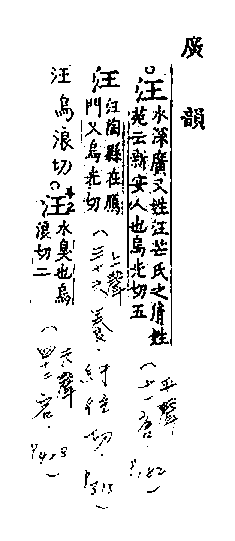 廣韻
汪 水深廣又姓汪芒氏之胤姓
苑云新安人也烏光切五
(平聲
十一唐 P.182)
汪 汪陶縣在鴈
門又烏光切
(上聲
三十六養 紆往切 P.313)
汪 烏浪切
汪 水臭也烏
浪切二
(去聲
四十二宕